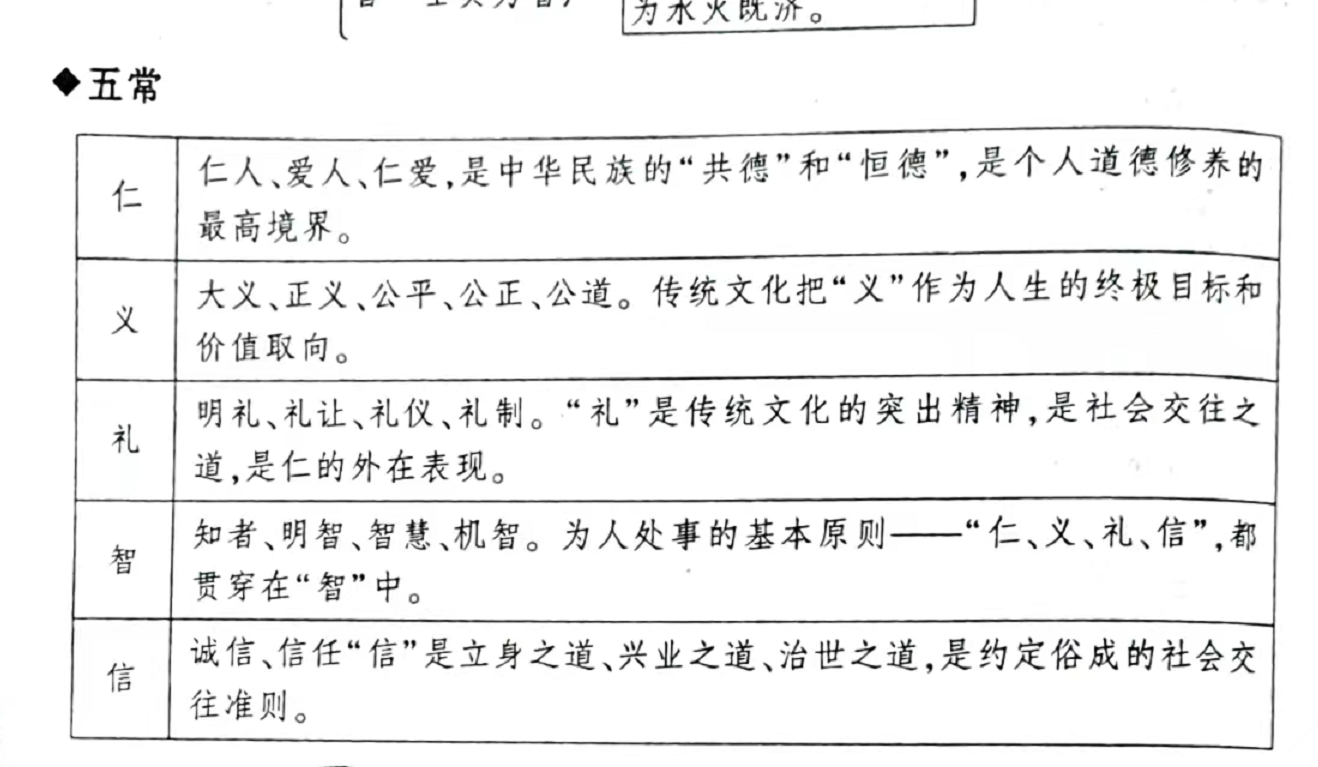 为水火既济。
◆五常
仁
仁人、爱人、仁爱,是中华民族的“共德”和“恒德”,是个人道德修养的
最高境界。
义
大义、正义、公平、公正、公道。传统文化把“义”作为人生的终极目标和
价值取向。
礼
明礼、礼让、礼仪、礼制。“礼”是传统文化的突出精神,是社会交往之
道,是仁的外在表现。
智
知者、明智、智慧、机智。为人处事的基本原则——“仁、义、礼、信”,都
贯穿在“智”中。
信
诚信、信任“信”是立身之道、兴业之道、治世之道,是约定俗成的社会交
往准则。